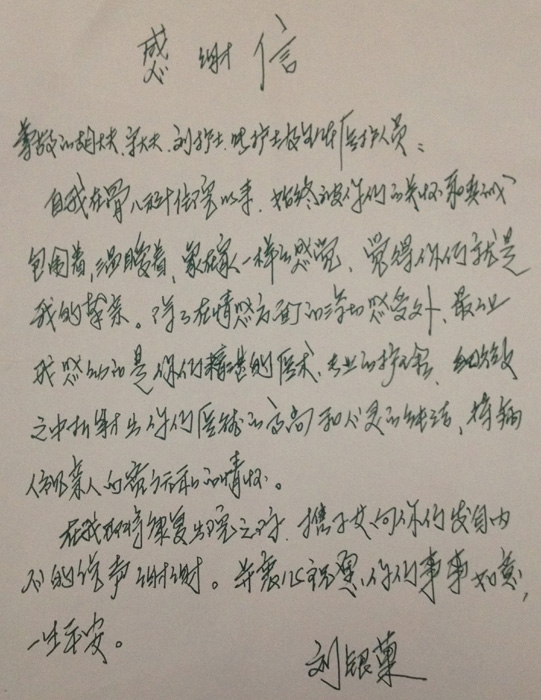 感谢信
尊敬的胡大夫、宋大夫、刘护士、护士及全体医护人员：
自我在骨八科住院以来，始终被你们的关怀和真诚
包围着，温暖着，象在家一样的感觉，觉得你们就是
我的亲亲。除了在情感方面的亲切感受外，最让
我感动的是你们精湛的医术、专业的护理，细微
之中折射出你们医德的高尚和心灵的纯洁，将病
人视亲人的无私的情怀。
在我即将康复出院之时，携子女向你们发自内
心的说声谢谢。并衷心祝愿你们事事如意，
一生平安。
刘银菓